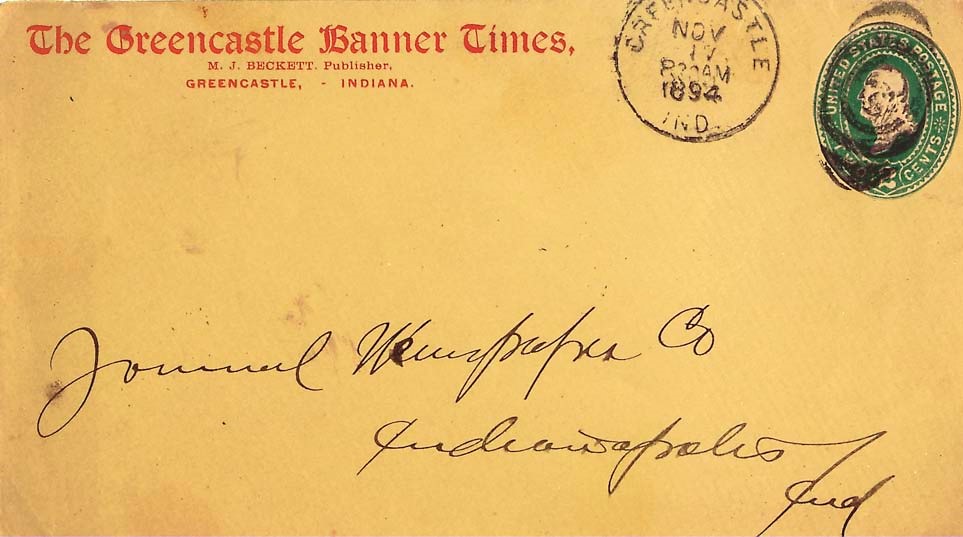 The Greencastle Banner Times,
M. J. BECKETT. Publisher,
GREENCASTLE, - INDIANA.
GREENCASTLE
NOV
17
1894
IND.
UNITED STATES POSTAGE
CENTS
Journal Newspaper Co
Indianapolis
Ind